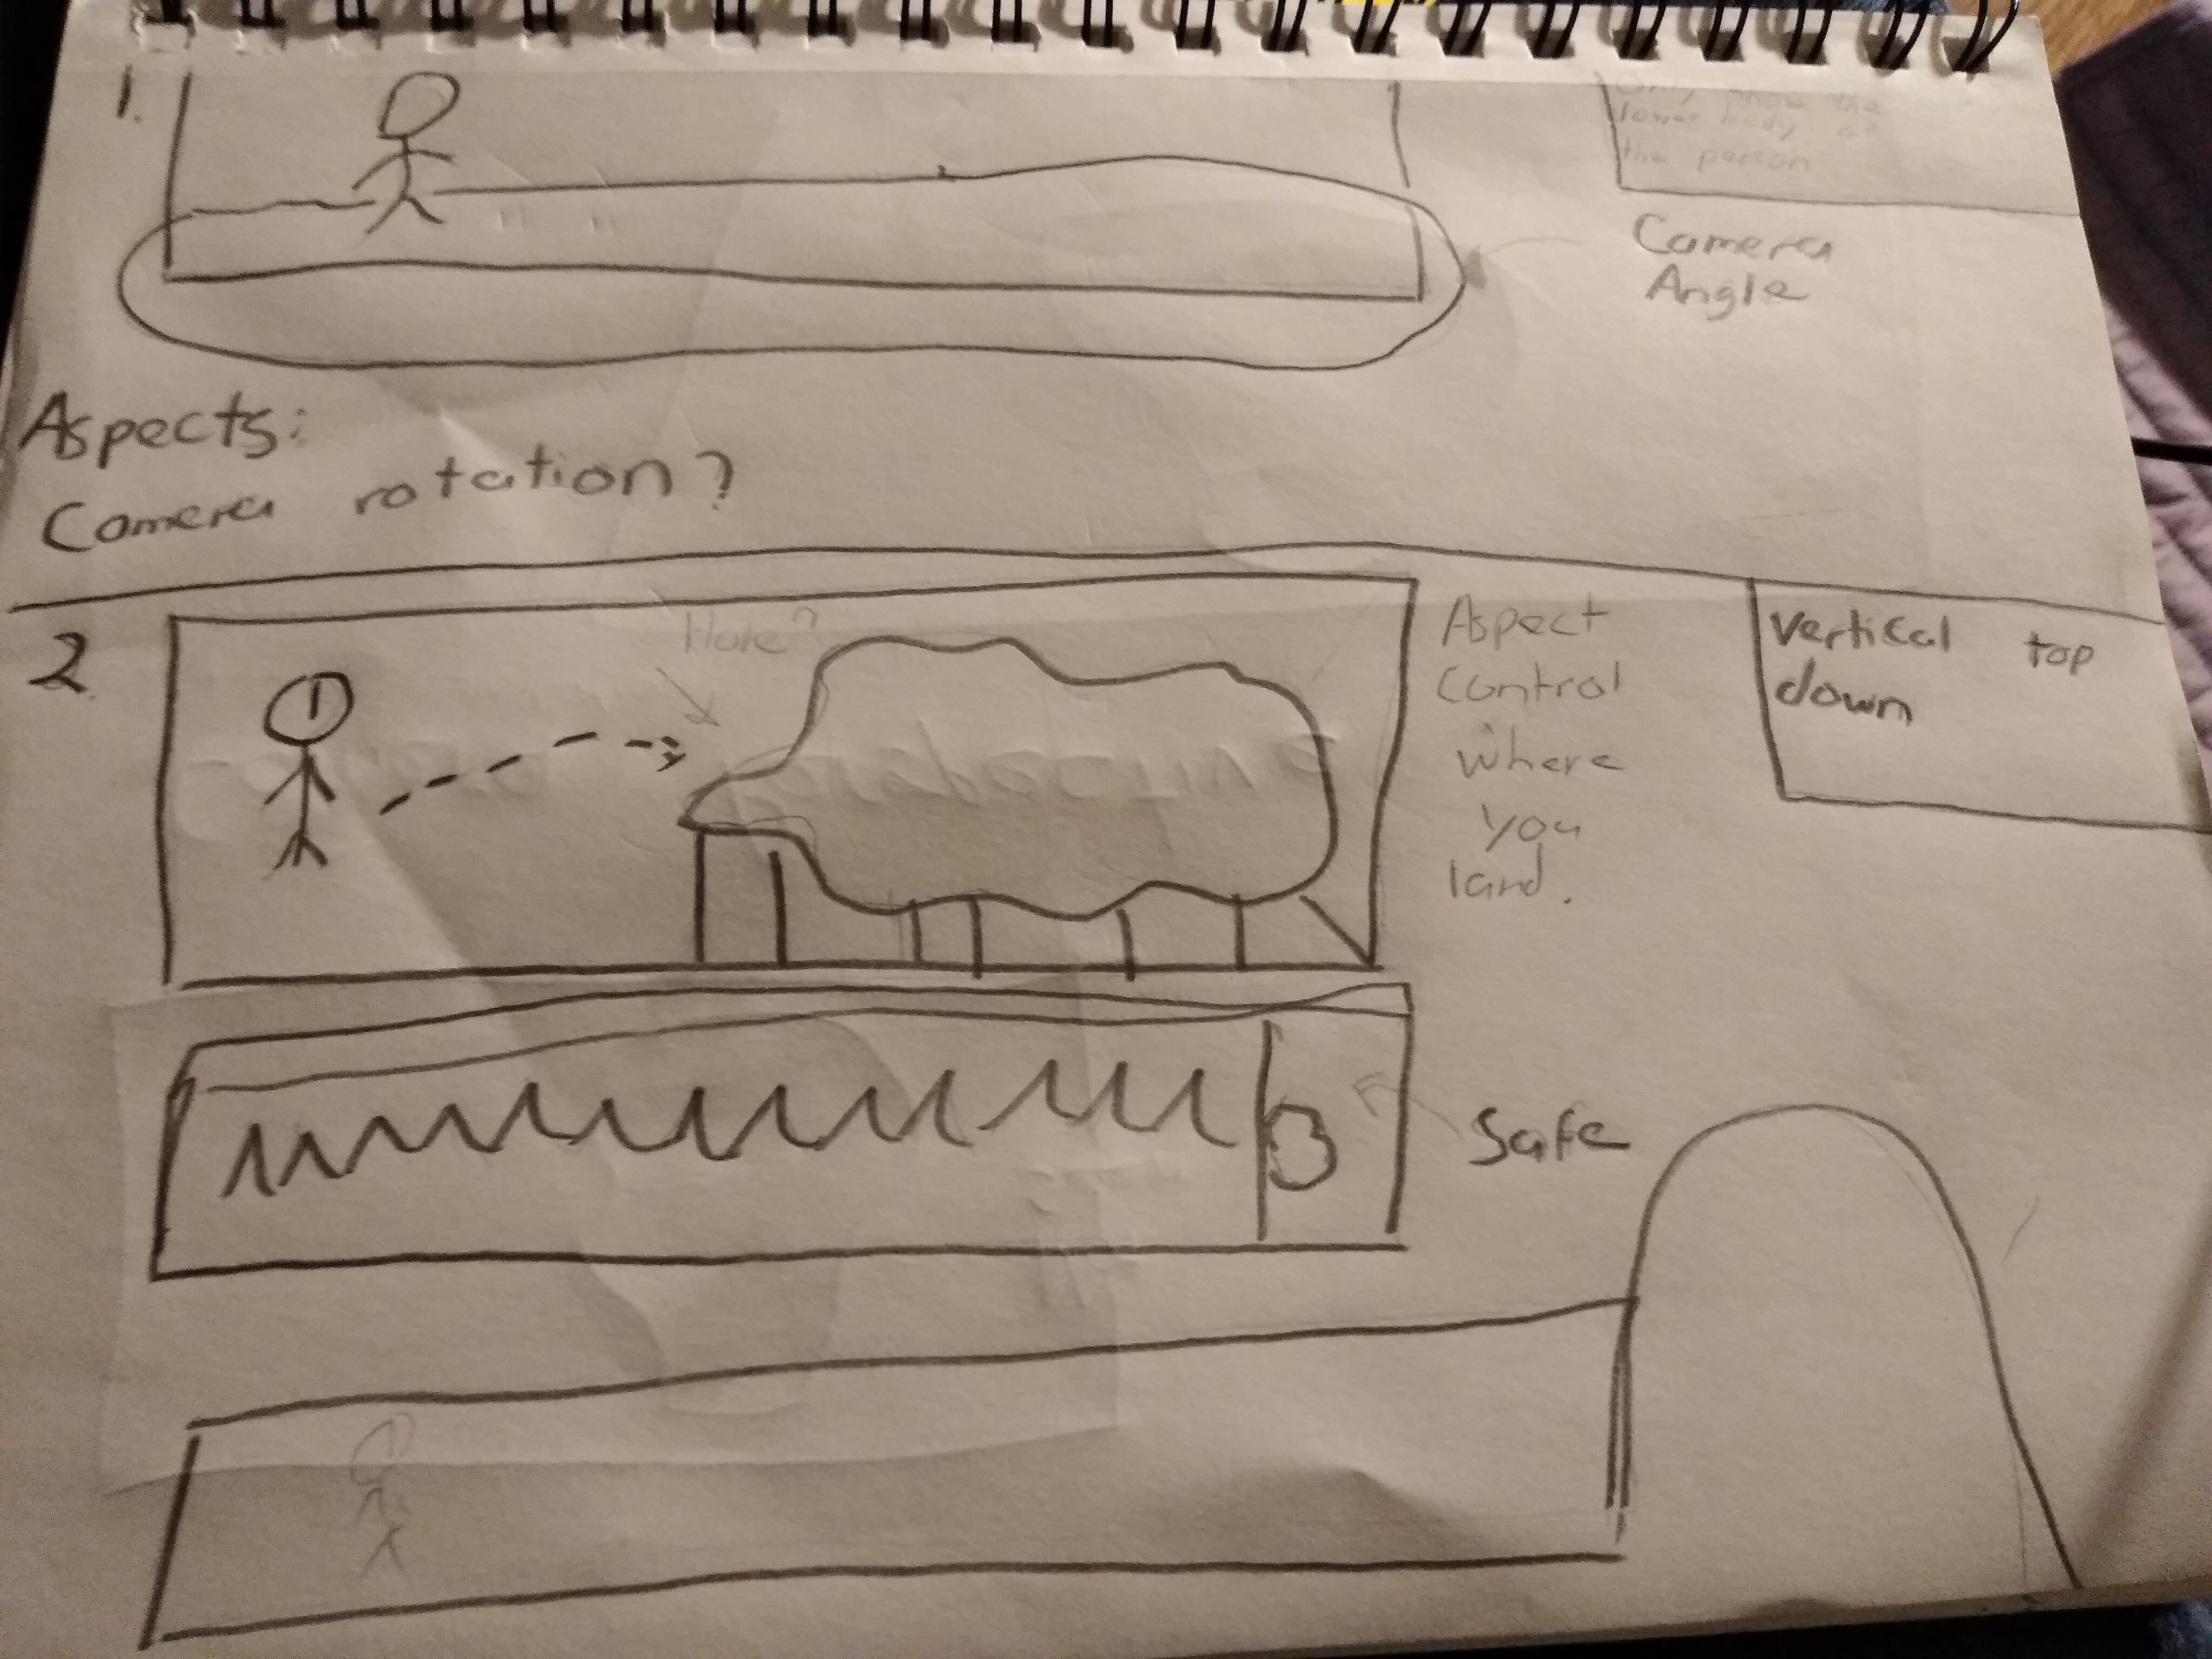 1.
Only show the
lower body of
the person
Camera
Angle
Aspects:
Camera rotation?
2.
Aspect
control
where
you
land.
Vertical top
down
Safe